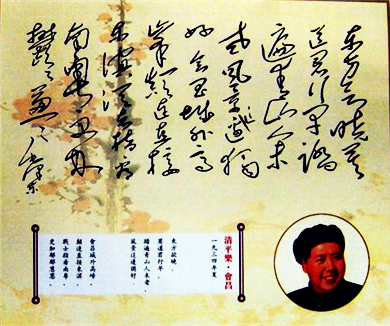 东方欲晓莫
道君行早踏
遍青山人未
老风景这边独
好会昌城外高
峰颠连直接
东溟战士指看
南粤更加
郁郁葱葱 毛泽东
清平樂·會昌
一九三四年夏
東方欲曉，
莫道君行早。
踏遍青山人未老，
風景這邊獨好。
會昌城外高峰，
顛連直接東溟。
戰士指看南粵，
更加鬱鬱蔥蔥。